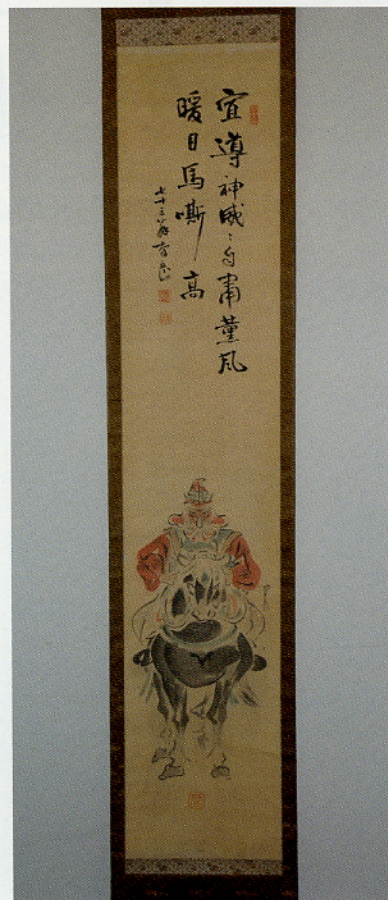 宜導神威〻自肅薫風
暖日馬嘶高
七十三翁